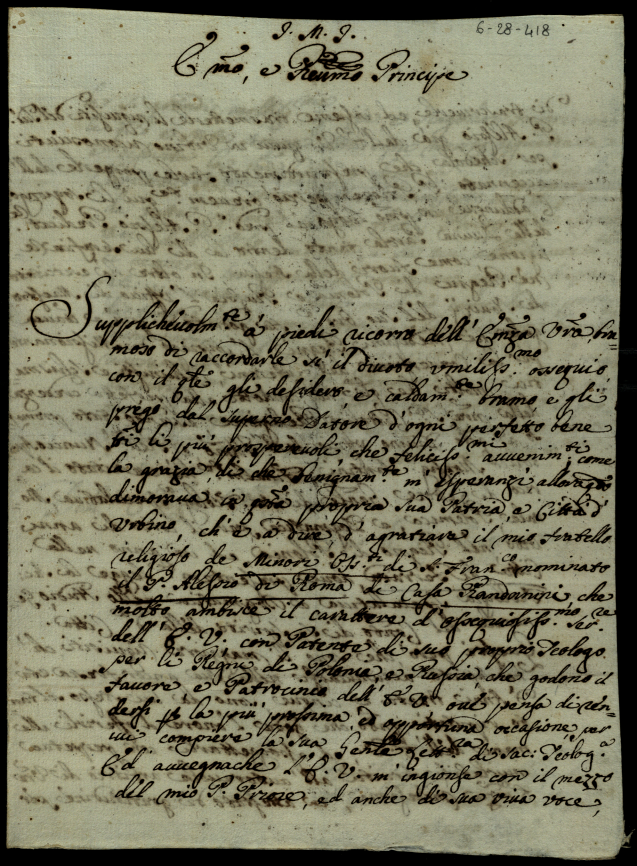 J. M. J.
6-28-418
E.mo, e Reumo Principe
Supplicheuolm.te à piedi ricorro dell' Emza Vrã bra=
moso di raccordarle sì il diuoto vmiliss.mo ossequio
con il qle gli desidero e caldam.te bramo e gli
prego dal superno Datore d'ogni perfetto bene
li più prosperevoli che feliciss.mi auuenim.ti come
la grazia, di che benignam.te m'esperanzì, allora
dimoraua in propria sua Patria, e Città d'
Vrbino, ch'è a dire d'agratiare il mio fratello
religioso de Minori Oss.ti di S. Fran.co nominato
il P. Alessio di Roma di Casa Randanini che
molto ambisce il carattere d'ossequiosiss.mo ser.re
dell' E. V. con Patente di suo proprio Teologo
per li Regni di Polonia, e Russia, che godono il
fauore e Patrocinio dell' E. V. oue pensa di ren=
dersi p la più prossima, ed opportuna occasione, per
iui compiere la sua Lett.ra di sac: Teolog.a
Ed auuegnache l'E. V. m'ingionse con il mezzo
del mio P. Priore, ed anche di sua viua voce,